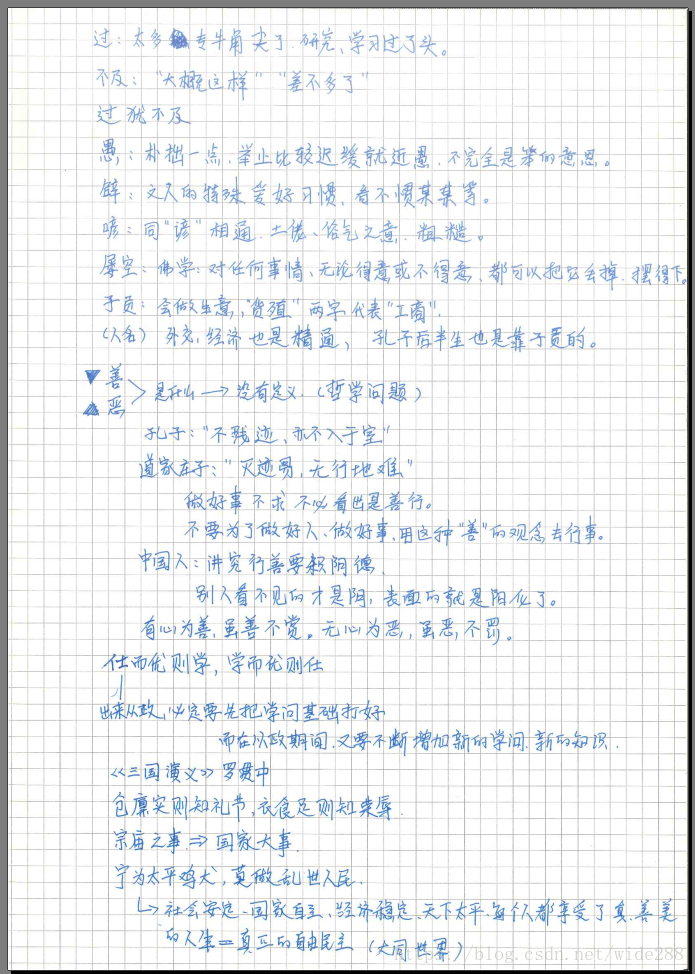 过：太多 专牛角尖了.研究、学习过了头。
不及："大概这样" "差不多了"
过犹不及
愚：朴拙一点、举止比较迟缓就近愚.不完全是笨的意思。
辟：文人的特殊爱好习惯,看不惯某某等。
喭：同"谚"相通.土佬、俗气之意.粗糙。
屡空：佛学：对任何事情、无论得意或不得意、都可以把它丢掉.摆得下。
子贡：会做生意,"货殖"两字代表"工商".
(人名) 外交,经济也是精通, 孔子后半生也是靠子贡的。
▼善
▲恶 > 是什么 → 没有定义.(哲学问题)
孔子："不践迹、亦不入于室"
道家庄子："灭迹易,无行地难"
做好事不求不必看出是善行。
不要为了做好人、做好事,用这种"善"的观念去行事。
中国人：讲究行善要积阴德.
别人看不见的才是阴,表面的就是阳化了。
有心为善,虽善不赏。无心为恶,虽恶,不罚。
仕而优则学,学而优则仕
出来从政,必定要先把学问基础打好
而在从政期间.又要不断增加新的学问.新的知识.
《三国演义》罗贯中
仓廪实则知礼节,衣食足则知荣辱.
宗庙之事⇒国家大事.
宁为太平鸡犬,莫做乱世人民.
↳社会安定、国家自主、经济稳定、天下太平.每个人都享受了真.善美
的人生=真正的自由民主 (大同世界)
https://blog.csdn.net/wide288